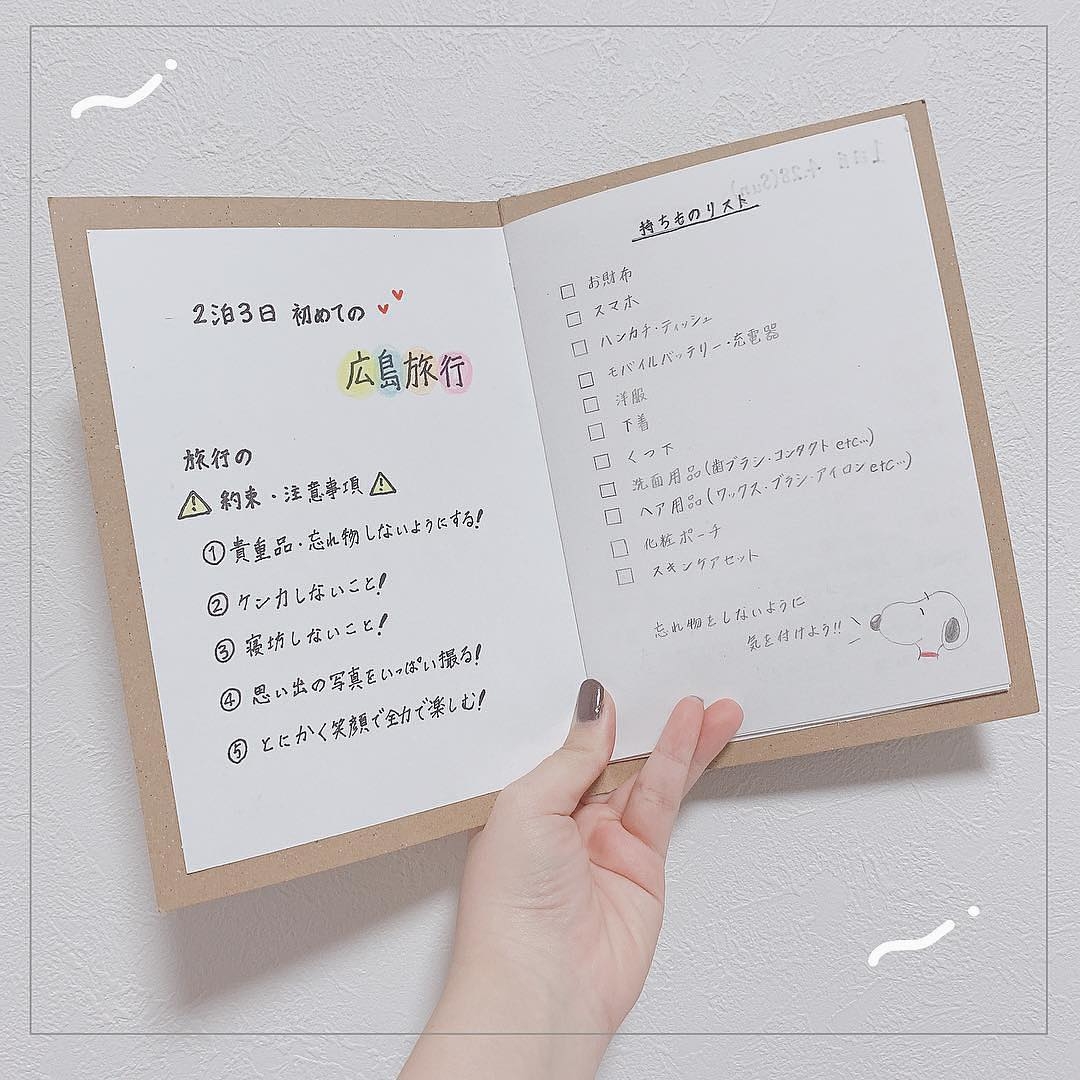 2泊3日 初めての
広島旅行
旅行の
約束・注意事項
① 貴重品・忘れ物しないようにする!
② ケンカしないこと!
③ 寝坊しないこと!
④ 思い出の写真をいっぱい撮る!
⑤ とにかく笑顔で全力で楽しむ!
持ちものリスト
□ お財布
□ スマホ
□ ハンカチ・ティッシュ
□ モバイルバッテリー・充電器
□ 洋服
□ 下着
□ くつ下
□ 洗面用品(歯ブラシ・コンタクト etc…)
□ ヘア用品(ワックス・ブラシ・アイロン etc…)
□ 化粧ポーチ
□ スキンケアセット
忘れ物をしないように
気を付けよう!!